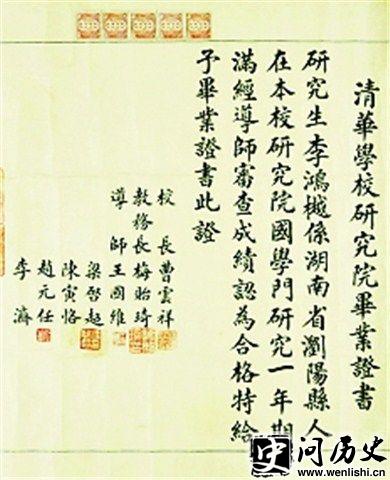 清華學校研究院畢業證書
研究生李鴻樾係湖南省瀏陽縣人
在本校研究院國學門研究一年期
滿經導師審查成績認為合格特給
予畢業證書此證
校長曹雲祥
教務長梅貽琦
導師王國維
梁啓超
陳寅恪
趙元任
李濟
问历史
www.wenlishi.cn